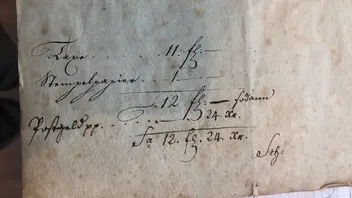 Taxe . . . . . . 11. fl: —
Stempelpapier . . 1 —
12. fl: — sodann
Postgeld pp. . . . . — 24. Xr.
Sa 12. fl. 24. Xr.